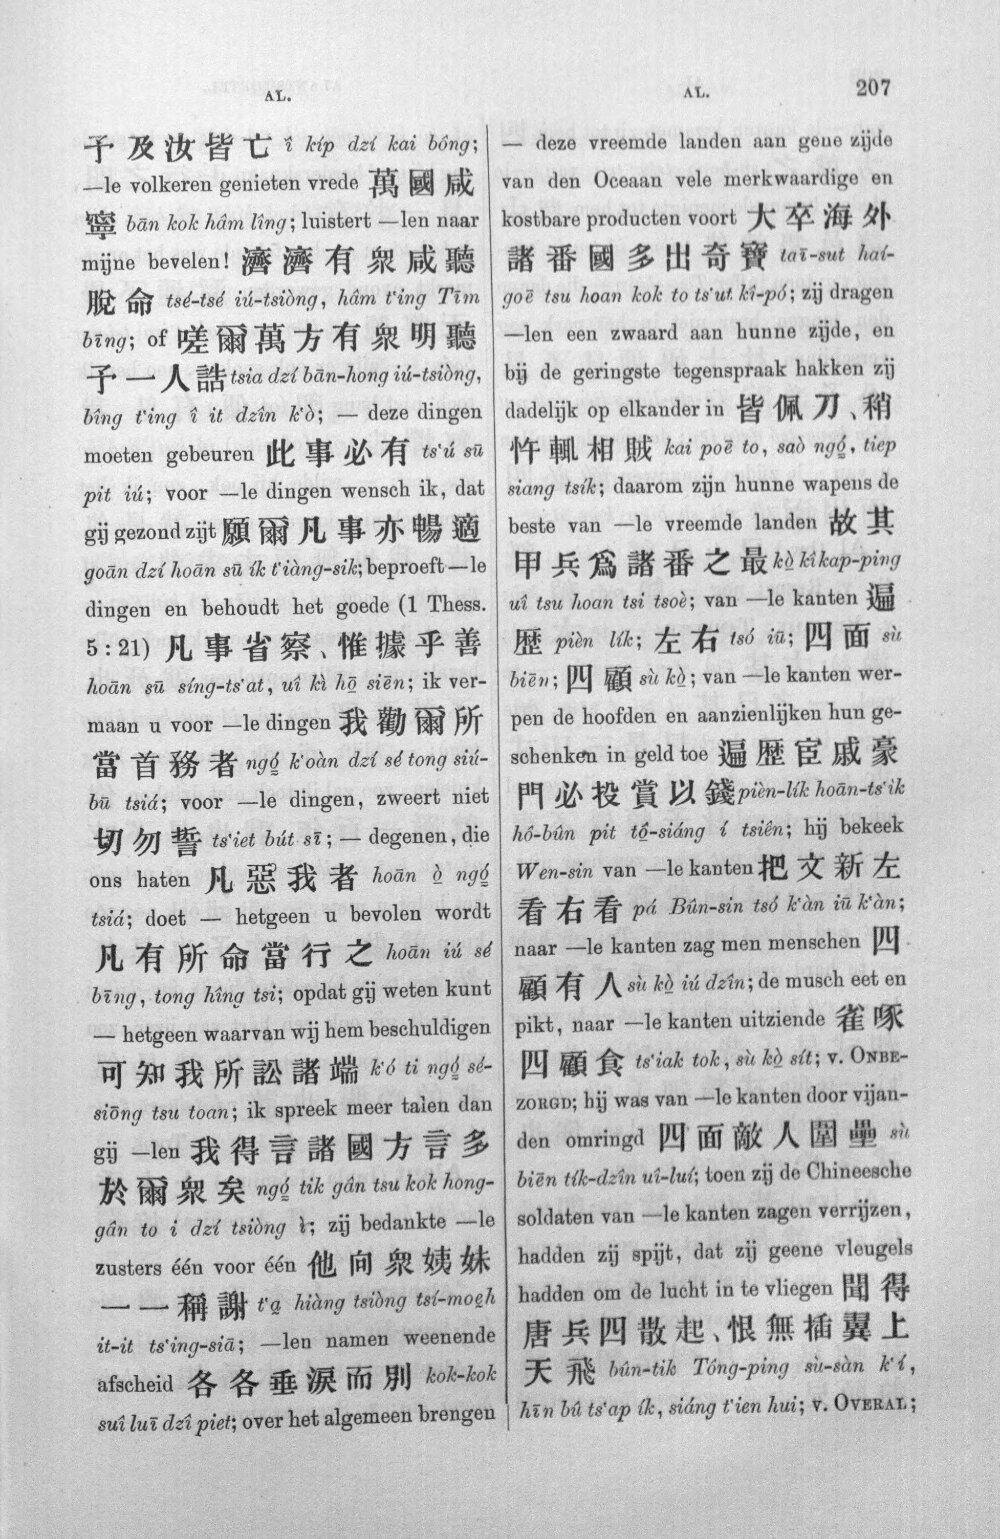 AL.
予及汝皆亡 î kíp dzí kai bông;
—le volkeren genieten vrede 萬國咸
寧 bān kok hâm lîng; luistert —len naar
mijne bevelen! 濟濟有衆咸聽
脫命 tsé-tsé iú-tsiòng, hâm t‘ing Tīm
bīng; of 嗟爾萬方有衆明聽
予一人誥 tsia dzí bān-hong iú-tsiòng,
bîng t‘ing î it dzîn k‘ò; — deze dingen
moeten gebeuren 此事必有 ts‘ú sū
pit iú; voor —le dingen wensch ik, dat
gij gezond zijt 願爾凡事亦暢適
goān dzí hoān sū ík t‘iàng-sik; beproeft —le
dingen en behoudt het goede (1 Thess.
5 : 21) 凡事省察、惟據乎善
hoān sū síng-ts‘at, uî kì hō͘ siēn; ik ver-
maan u voor —le dingen 我勸爾所
當首務者 ngó͘ k‘oàn dzí sé tong siú-
bū tsiá; voor —le dingen, zweert niet
切勿誓 ts‘iet bút sī; — degenen, die
ons haten 凡惡我者 hoān ò͘ ngó͘
tsiá; doet — hetgeen u bevolen wordt
凡有所命當行之 hoān iú sé
bīng, tong hîng tsi; opdat gij weten kunt
— hetgeen waarvan wij hem beschuldigen
可知我所訟諸端 k‘ó ti ngó͘ sé-
siōng tsu toan; ik spreek meer talen dan
gij —len 我得言諸國方言多
於爾衆矣 ngó͘ tik gân tsu kok hong-
gân to i dzí tsiòng ì; zij bedankte —le
zusters één voor één 他向衆姨妹
一一稱謝 t‘a̤ hiàng tsiòng tsí-moe̤h
it-it ts‘ing-siā; —len namen weenende
afscheid 各各垂淚而別 kok-kok
suî luī dzî piet; over het algemeen brengen
AL.
207
— deze vreemde landen aan gene zijde
van den Oceaan vele merkwaardige en
kostbare producten voort 大卒海外
諸番國多出奇寶 taī-sut haí-
goē tsu hoan kok to ts‘ut kî-pó; zij dragen
—len een zwaard aan hunne zijde, en
bij de geringste tegenspraak hakken zij
dadelijk op elkander in 皆佩刀、稍
忤輒相賊 kai poē to, saò ngó͘, tiep
siang tsík; daarom zijn hunne wapens de
beste van —le vreemde landen 故其
甲兵爲諸番之最 kò͘ kî kap-ping
uî tsu hoan tsi tsoè; van —le kanten 遍
歷 pièn lík; 左右 tsó iū; 四面 sù
biēn; 四顧 sù kò͘; van —le kanten wer-
pen de hoofden en aanzienlijken hun ge-
schenken in geld toe 遍歷宦戚豪
門必投賞以錢 pièn-lík hoān-ts‘ik
hô-bûn pit tô͘-siáng í tsiên; hij bekeek
Wen-sin van —le kanten 把文新左
看右看 pá Bûn-sin tsó k‘àn iū k‘àn;
naar —le kanten zag men menschen 四
顧有人 sù kò͘ iú dzîn; de musch eet en
pikt, naar —le kanten uitziende 雀啄
四顧食 ts‘iak tok, sù kò͘ sít; v. ONBE-
ZORGD; hij was van —le kanten door vijan-
den omringd 四面敵人圍壘 sù
biēn tík-dzîn uî-luí; toen zij de Chineesche
soldaten van —le kanten zagen verrijzen,
hadden zij spijt, dat zij geene vleugels
hadden om de lucht in te vliegen 聞得
唐兵四散起、恨無插翼上
天飛 bûn-tik Tông-ping sù-sàn k‘í,
hīn bû ts‘ap ík, siáng t‘ien hui; v. OVERAL;